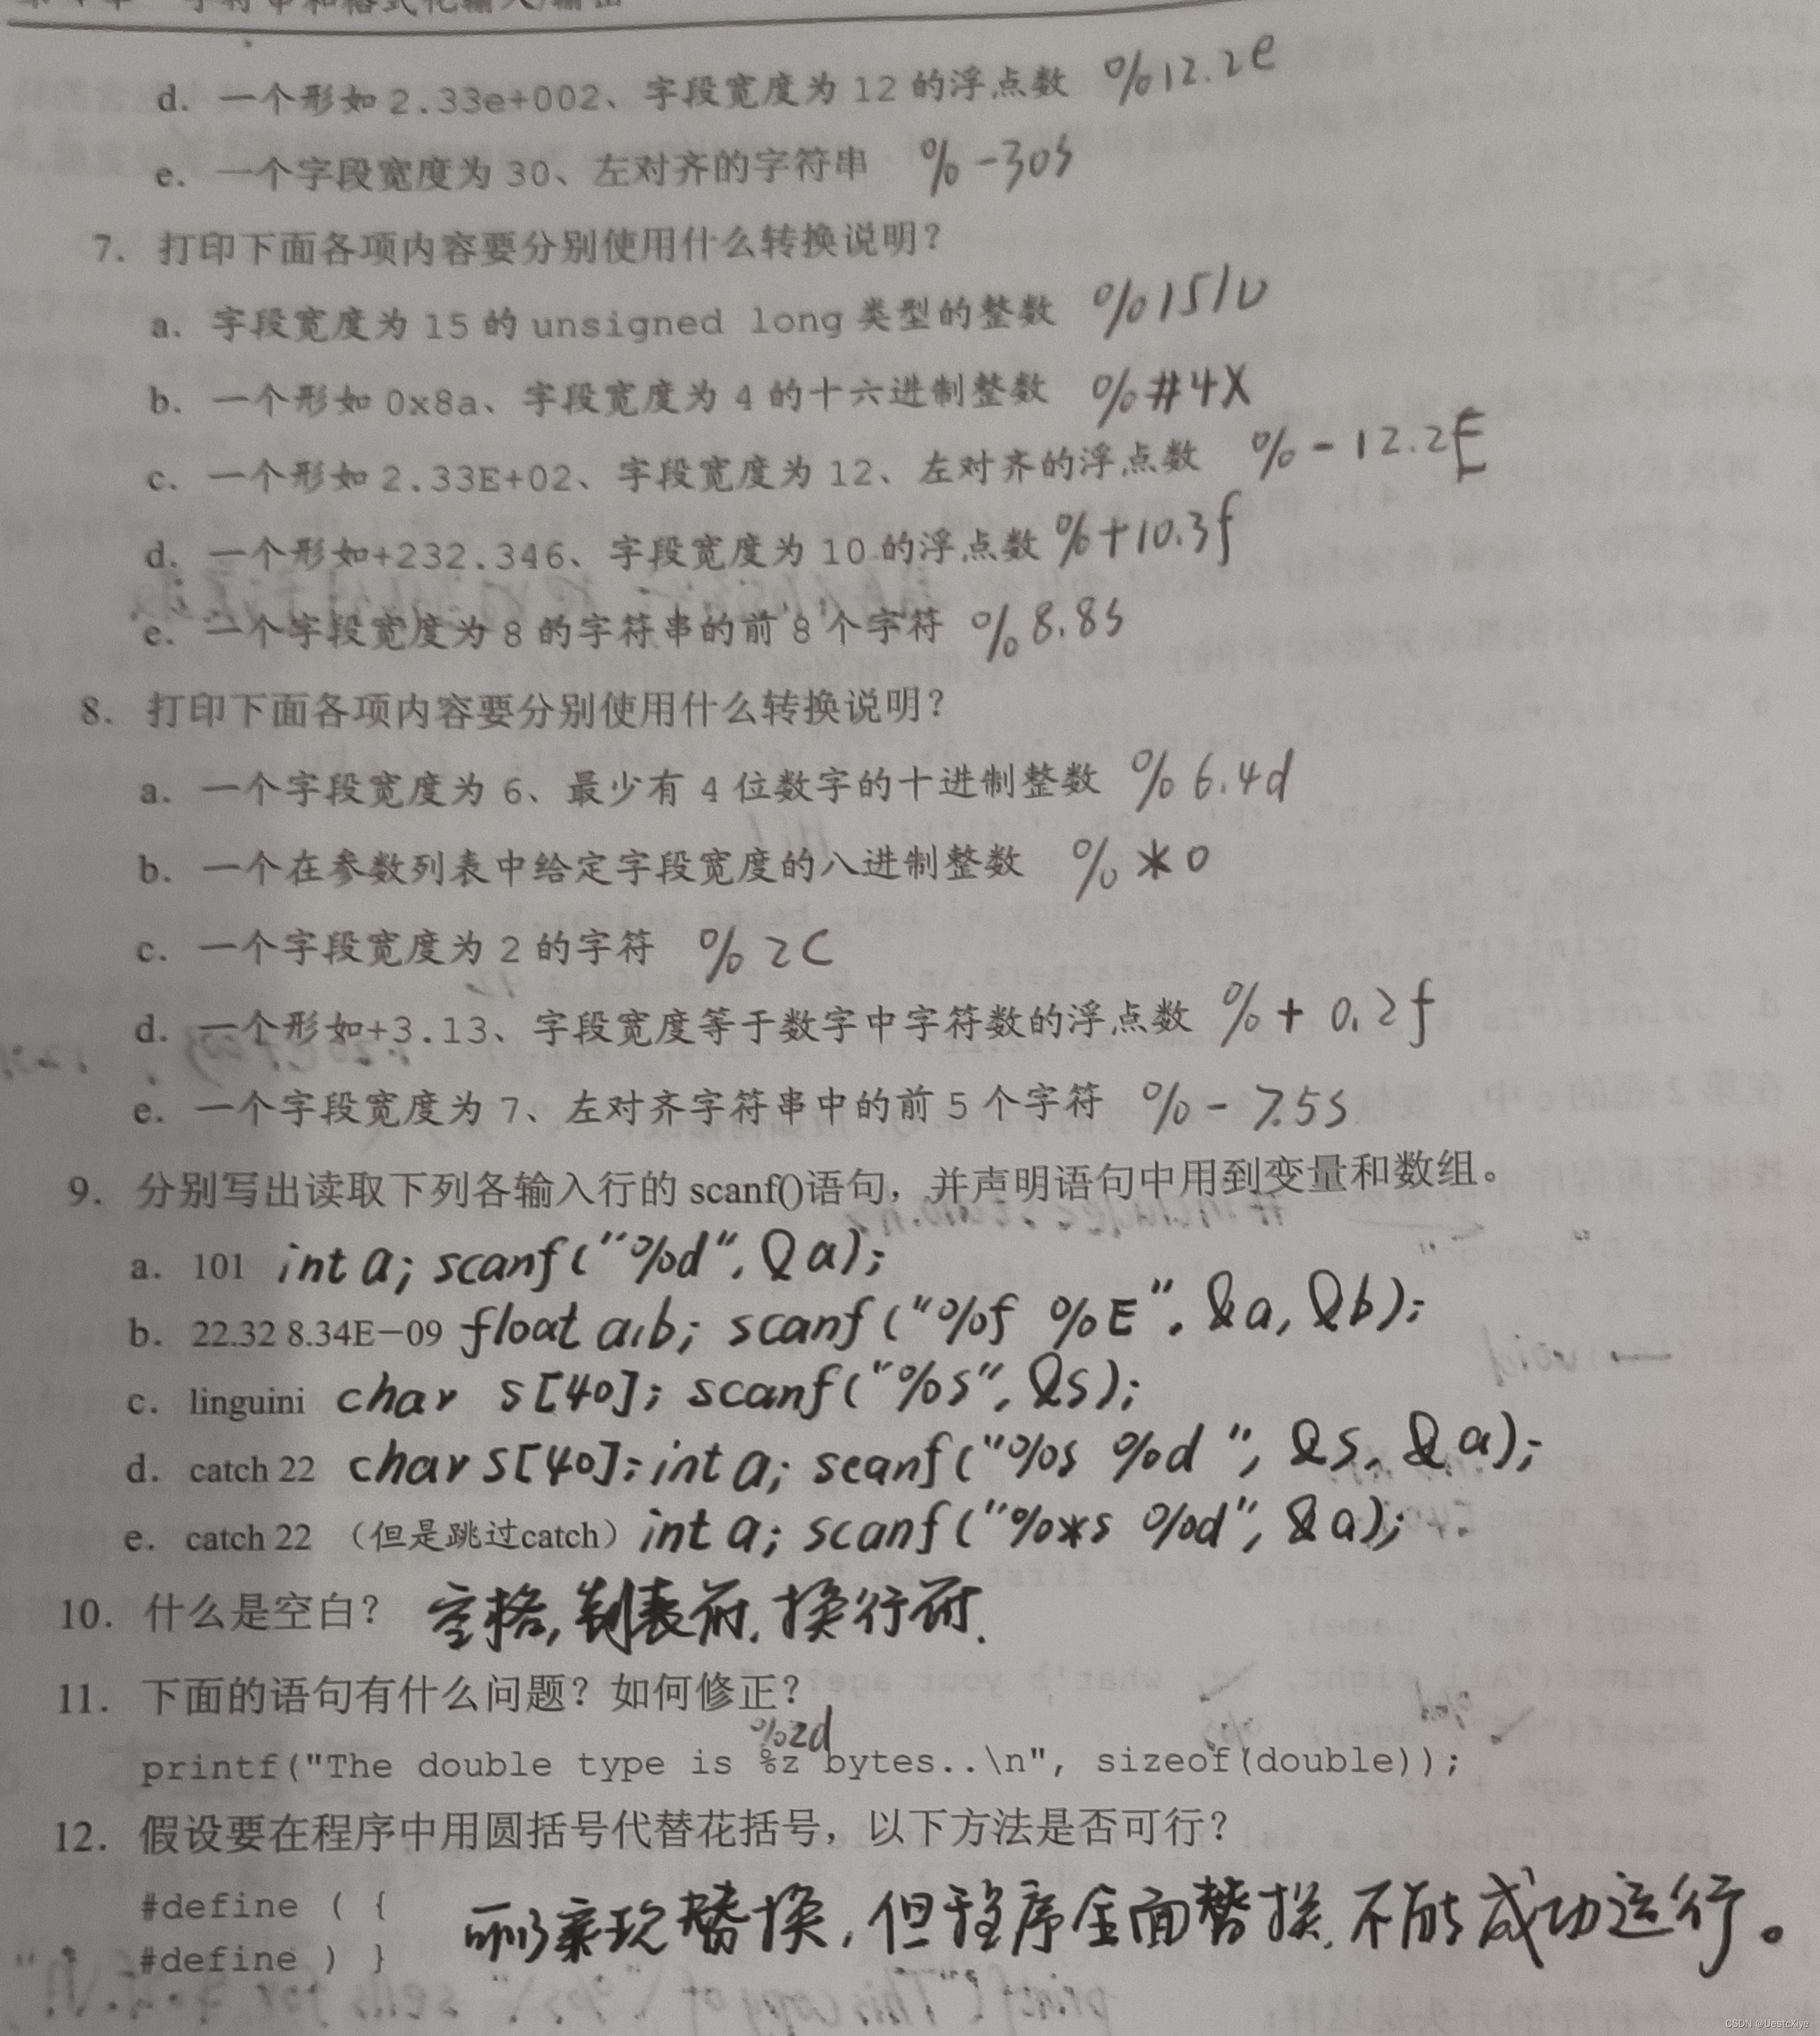 d. 一个形如 2.33e+002、字段宽度为 12 的浮点数 %12.2e
e. 一个字段宽度为 30、左对齐的字符串 %-30s
7. 打印下面各项内容要分别使用什么转换说明？
a. 字段宽度为 15 的 unsigned long 类型的整数 %15lu
b. 一个形如 0x8a、字段宽度为 4 的十六进制整数 %#4X
c. 一个形如 2.33E+02、字段宽度为 12、左对齐的浮点数 %-12.2E
d. 一个形如+232.346、字段宽度为 10 的浮点数 %+10.3f
e. 一个字段宽度为 8 的字符串的前 8 个字符 %8.8s
8. 打印下面各项内容要分别使用什么转换说明？
a. 一个字段宽度为 6、最少有 4 位数字的十进制整数 %6.4d
b. 一个在参数列表中给定字段宽度的八进制整数 %*o
c. 一个字段宽度为 2 的字符 %2c
d. 一个形如+3.13、字段宽度等于数字中字符数的浮点数 %+0.2f
e. 一个字段宽度为 7、左对齐字符串中的前 5 个字符 %-7.5s
9. 分别写出读取下列各输入行的 scanf()语句，并声明语句中用到变量和数组。
a. 101 int a; scanf("%d", &a);
b. 22.32 8.34E−09 float a,b; scanf("%f %E", &a, &b);
c. linguini char s[40]; scanf("%s", &s);
d. catch 22 char s[40]; int a; scanf("%s %d", &s, &a);
e. catch 22 （但是跳过catch）int a; scanf("%*s %d", &a);
10. 什么是空白？ 空格,制表符,换行符.
11. 下面的语句有什么问题？如何修正？
%zd
printf("The double type is %z bytes..\n", sizeof(double));
12. 假设要在程序中用圆括号代替花括号，以下方法是否可行？
#define ( {
#define ) }
可以实现替换,但程序全面替换,不能成功运行。
CSDN @UestcXiye